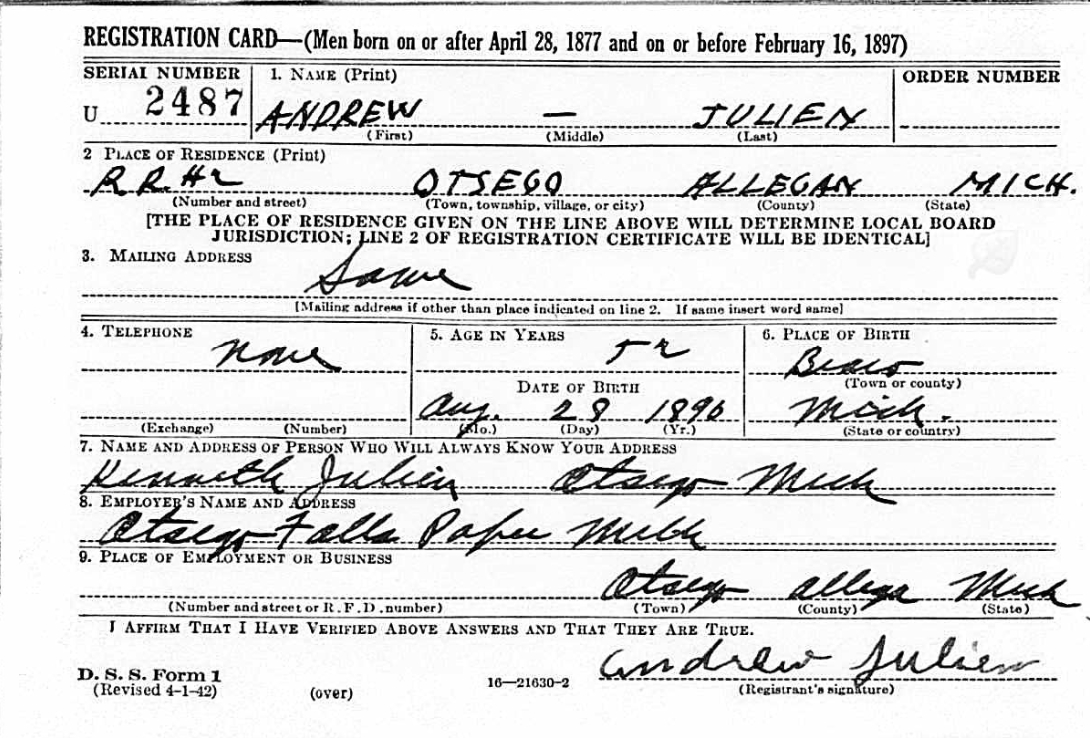 REGISTRATION CARD—(Men born on or after April 28, 1877 and on or before February 16, 1897)
SERIAL NUMBER 1. NAME (Print) ORDER NUMBER
U 2487 ANDREW — JULIEN
(First) (Middle) (Last)
2 PLACE OF RESIDENCE (Print)
R R. #2 OTSEGO ALLEGAN MICH.
(Number and street) (Town, township, village, or city) (County) (State)
[THE PLACE OF RESIDENCE GIVEN ON THE LINE ABOVE WILL DETERMINE LOCAL BOARD
JURISDICTION; LINE 2 OF REGISTRATION CERTIFICATE WILL BE IDENTICAL]
3. MAILING ADDRESS
Same
[Mailing address if other than place indicated on line 2. If same insert word same]
4. TELEPHONE 5. AGE IN YEARS 6. PLACE OF BIRTH
None 52
(Town or county)
DATE OF BIRTH
Aug. 28 Mich.
(Exchange) (Number) (Mo.) (Day) (Yr.) (State or country)
7. NAME AND ADDRESS OF PERSON WHO WILL ALWAYS KNOW YOUR ADDRESS
Kenneth Julien Otsego Mich
8. EMPLOYER'S NAME AND ADDRESS
Otsego Falls Paper Mills
9. PLACE OF EMPLOYMENT OR BUSINESS
Otsego Allega Mich
(Number and street or R. F. D. number) (Town) (County) (State)
I AFFIRM THAT I HAVE VERIFIED ABOVE ANSWERS AND THAT THEY ARE TRUE.
Andrew Julien
D. S. S. Form 1
(Revised 4-1-42) (over) 16—21630-2 (Registrant's signature)